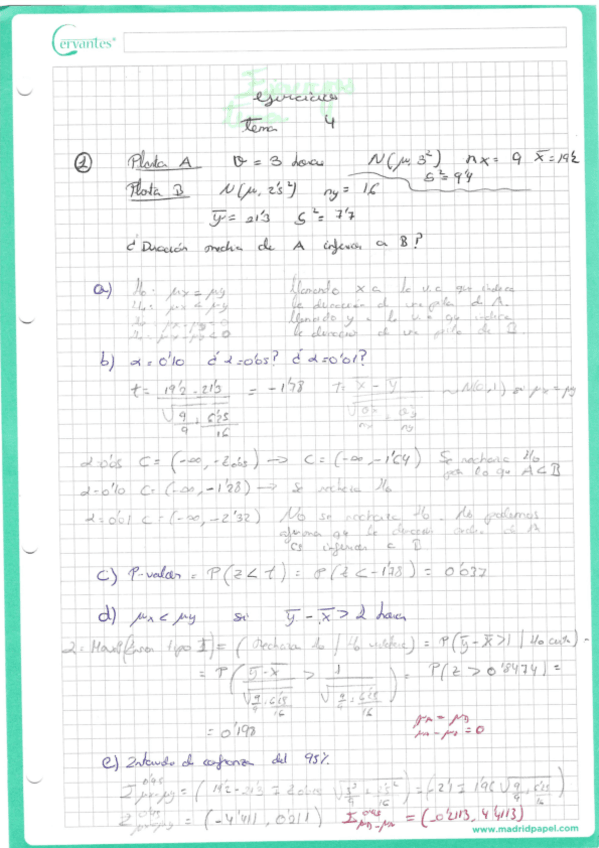 Cervantes®
Ejercicios
tema 4
ejercicios
tema 4
① Pila A σ = 3 horas N(μ, 3²) nx = 9 x̄ = 19'2
S² = 9'4
Pila B N(μ, 2'5²) ny = 16
ȳ = 21'3 S² = 7'7
¿Duración media de A inferior a B?
a) H₀: μx = μy llamando x a la v.a que indica
H₁: μx < μy la duración de una pila de A.
H₀: μx - μy = 0 llamando y a la v.a que indica
H₁: μx - μy < 0 la duración de una pila de B.
b) α = 0'10 ¿α = 0'05? ¿α = 0'01?
t = (19'2 - 21'3) / √(9/9 + 6'25/16) = -1'78 T = (x̄ - ȳ) / √(σ²x/nx + σ²y/ny) ~ N(0,1) si μx = μy
α = 0'05 C = (-∞, -z0'05) → C = (-∞, -1'64) Se rechaza H₀
por lo que A < B
α = 0'10 C = (-∞, -1'28) → Se rechaza H₀
α = 0'01 C = (-∞, -2'32) No se rechaza H₀. No podemos
afirmar que la duración media de A
es inferior a B
c) P-valor = P(Z < t) = P(Z < -1'78) = 0'037
d) μx < μy si ȳ - x̄ > 2 horas
(Rechazar H₀ | H₀ ) = P(ȳ - x̄ > 1 | H₀ cierta)
= P( (ȳ - x̄) / √(9/9 + 6'25/16) > 1 / √(9/9 + 6'25/16) ) = P(Z > 0'8474) =
= 0'198
μx = μy
μx - μy = 0
e) Intervalo de confianza del 95%
I 0'95 μx-μy = (19'2 - 21'3 ± z0'025 √(3²/9 + 2'5²/16)) = (-2'1 ± 1'96 √(9/9 + 6'25/16))
I 0'95 μx-μy = (-4'411, 0'211) I 0'95 μy-μx = (-0'2113, 4'4113)
www.madridpapel.com